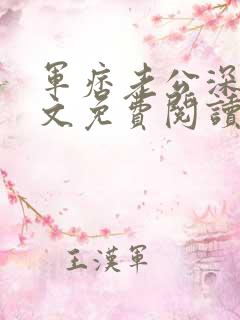 軍痞老公深
文免費閱讀
王漢軍